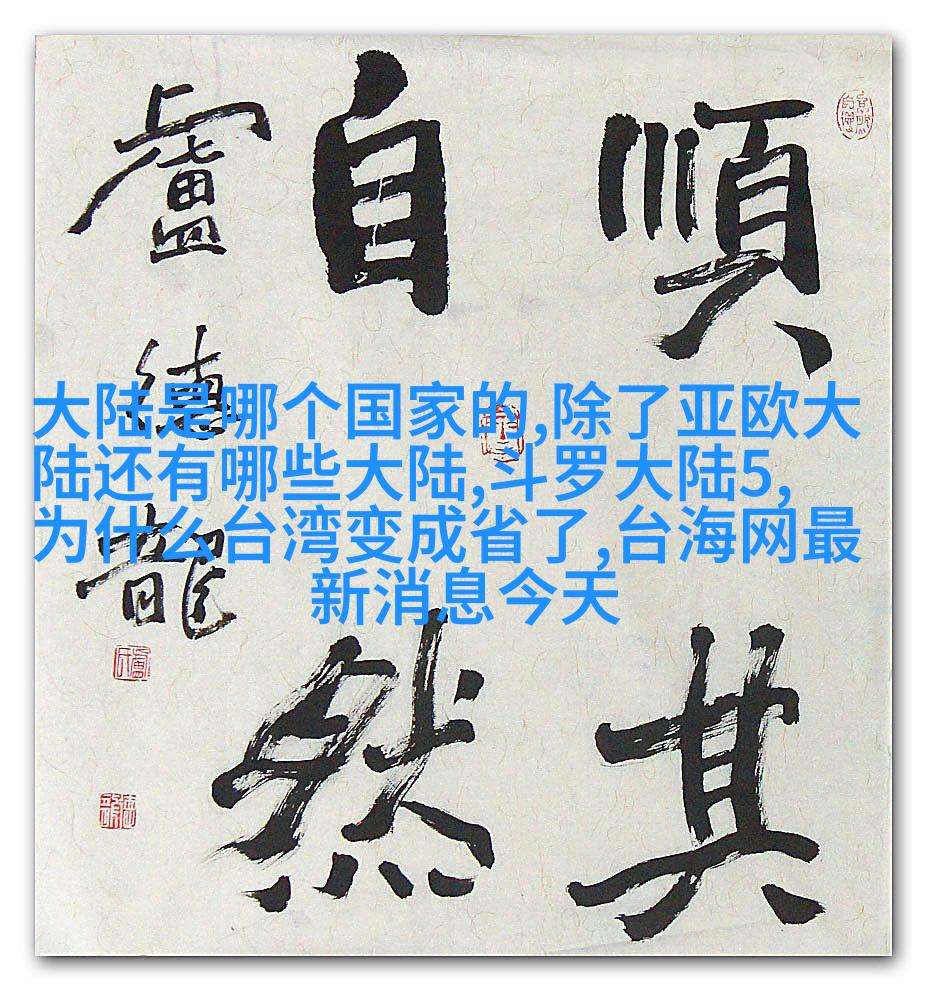 順其
自然
盧德龍
大陆是哪个国家的,除了亚欧大
陆还有哪些大陆,斗罗大陆5,
为什么台湾变成省了,台海网最
新消息今天